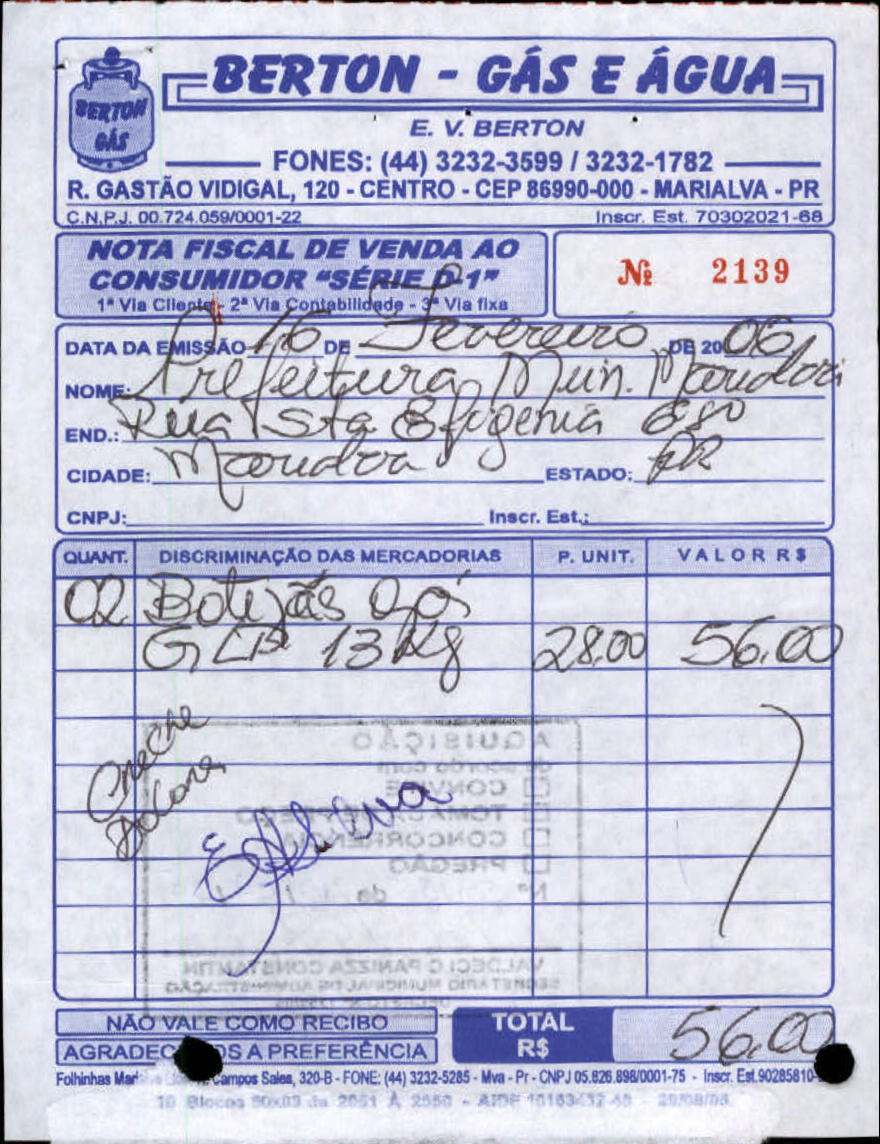 BERTON GÁS
BERTON - GÁS E ÁGUA
E. V. BERTON
FONES: (44) 3232-3599 / 3232-1782
R. GASTÃO VIDIGAL, 120 - CENTRO - CEP 86990-000 - MARIALVA - PR
C.N.P.J. 00.724.059/0001-22 Inscr. Est. 70302021-68
NOTA FISCAL DE VENDA AO
CONSUMIDOR "SÉRIE D-1"
1ª Via Cliente - 2ª Via Contabilidade - 3ª Via fixa
Nº 2139
DATA DA EMISSÃO 16 DE Fevereiro DE 2006
NOME: Prefeitura Mun.
END.: Rua Sta Efigenia 680
CIDADE: ESTADO: PR
CNPJ: Inscr. Est.:
QUANT. DISCRIMINAÇÃO DAS MERCADORIAS P. UNIT. VALOR R$
02 Botijãs Gás
GLP 13 Kg 28,00 56,00
Creche
AQUISIÇÃO
de acordo com
CONVITE
TOMADA DE PREÇO
CONCORRÊNCIA
PREGÃO
Nº de /
VALDECLO PANIZZA CONSTANTIM
SECRETARIO MUNICIPAL DE ADMINISTRAÇÃO
NÃO VALE COMO RECIBO
AGRADECEMOS A PREFERÊNCIA
TOTAL R$ 56,00
Campos Sales, 320-B - FONE: (44) 3232-5285 - Mva - Pr - CNPJ 05.826.898/0001-75 - Inscr. Est.90285810-
10 Blocos 50x03 de 2051 À 2550 - AIDF